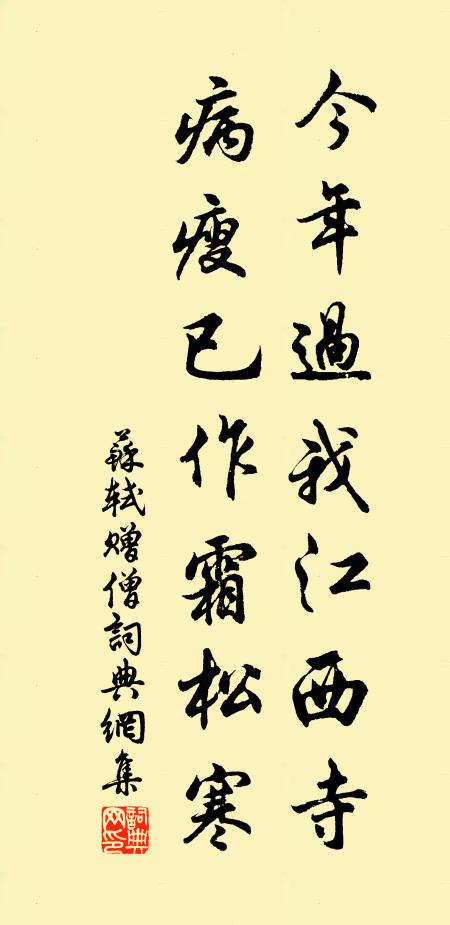 今年過我江西寺
病瘦已作霜松寒
蘇軾贈僧詞典網集
詞典网印